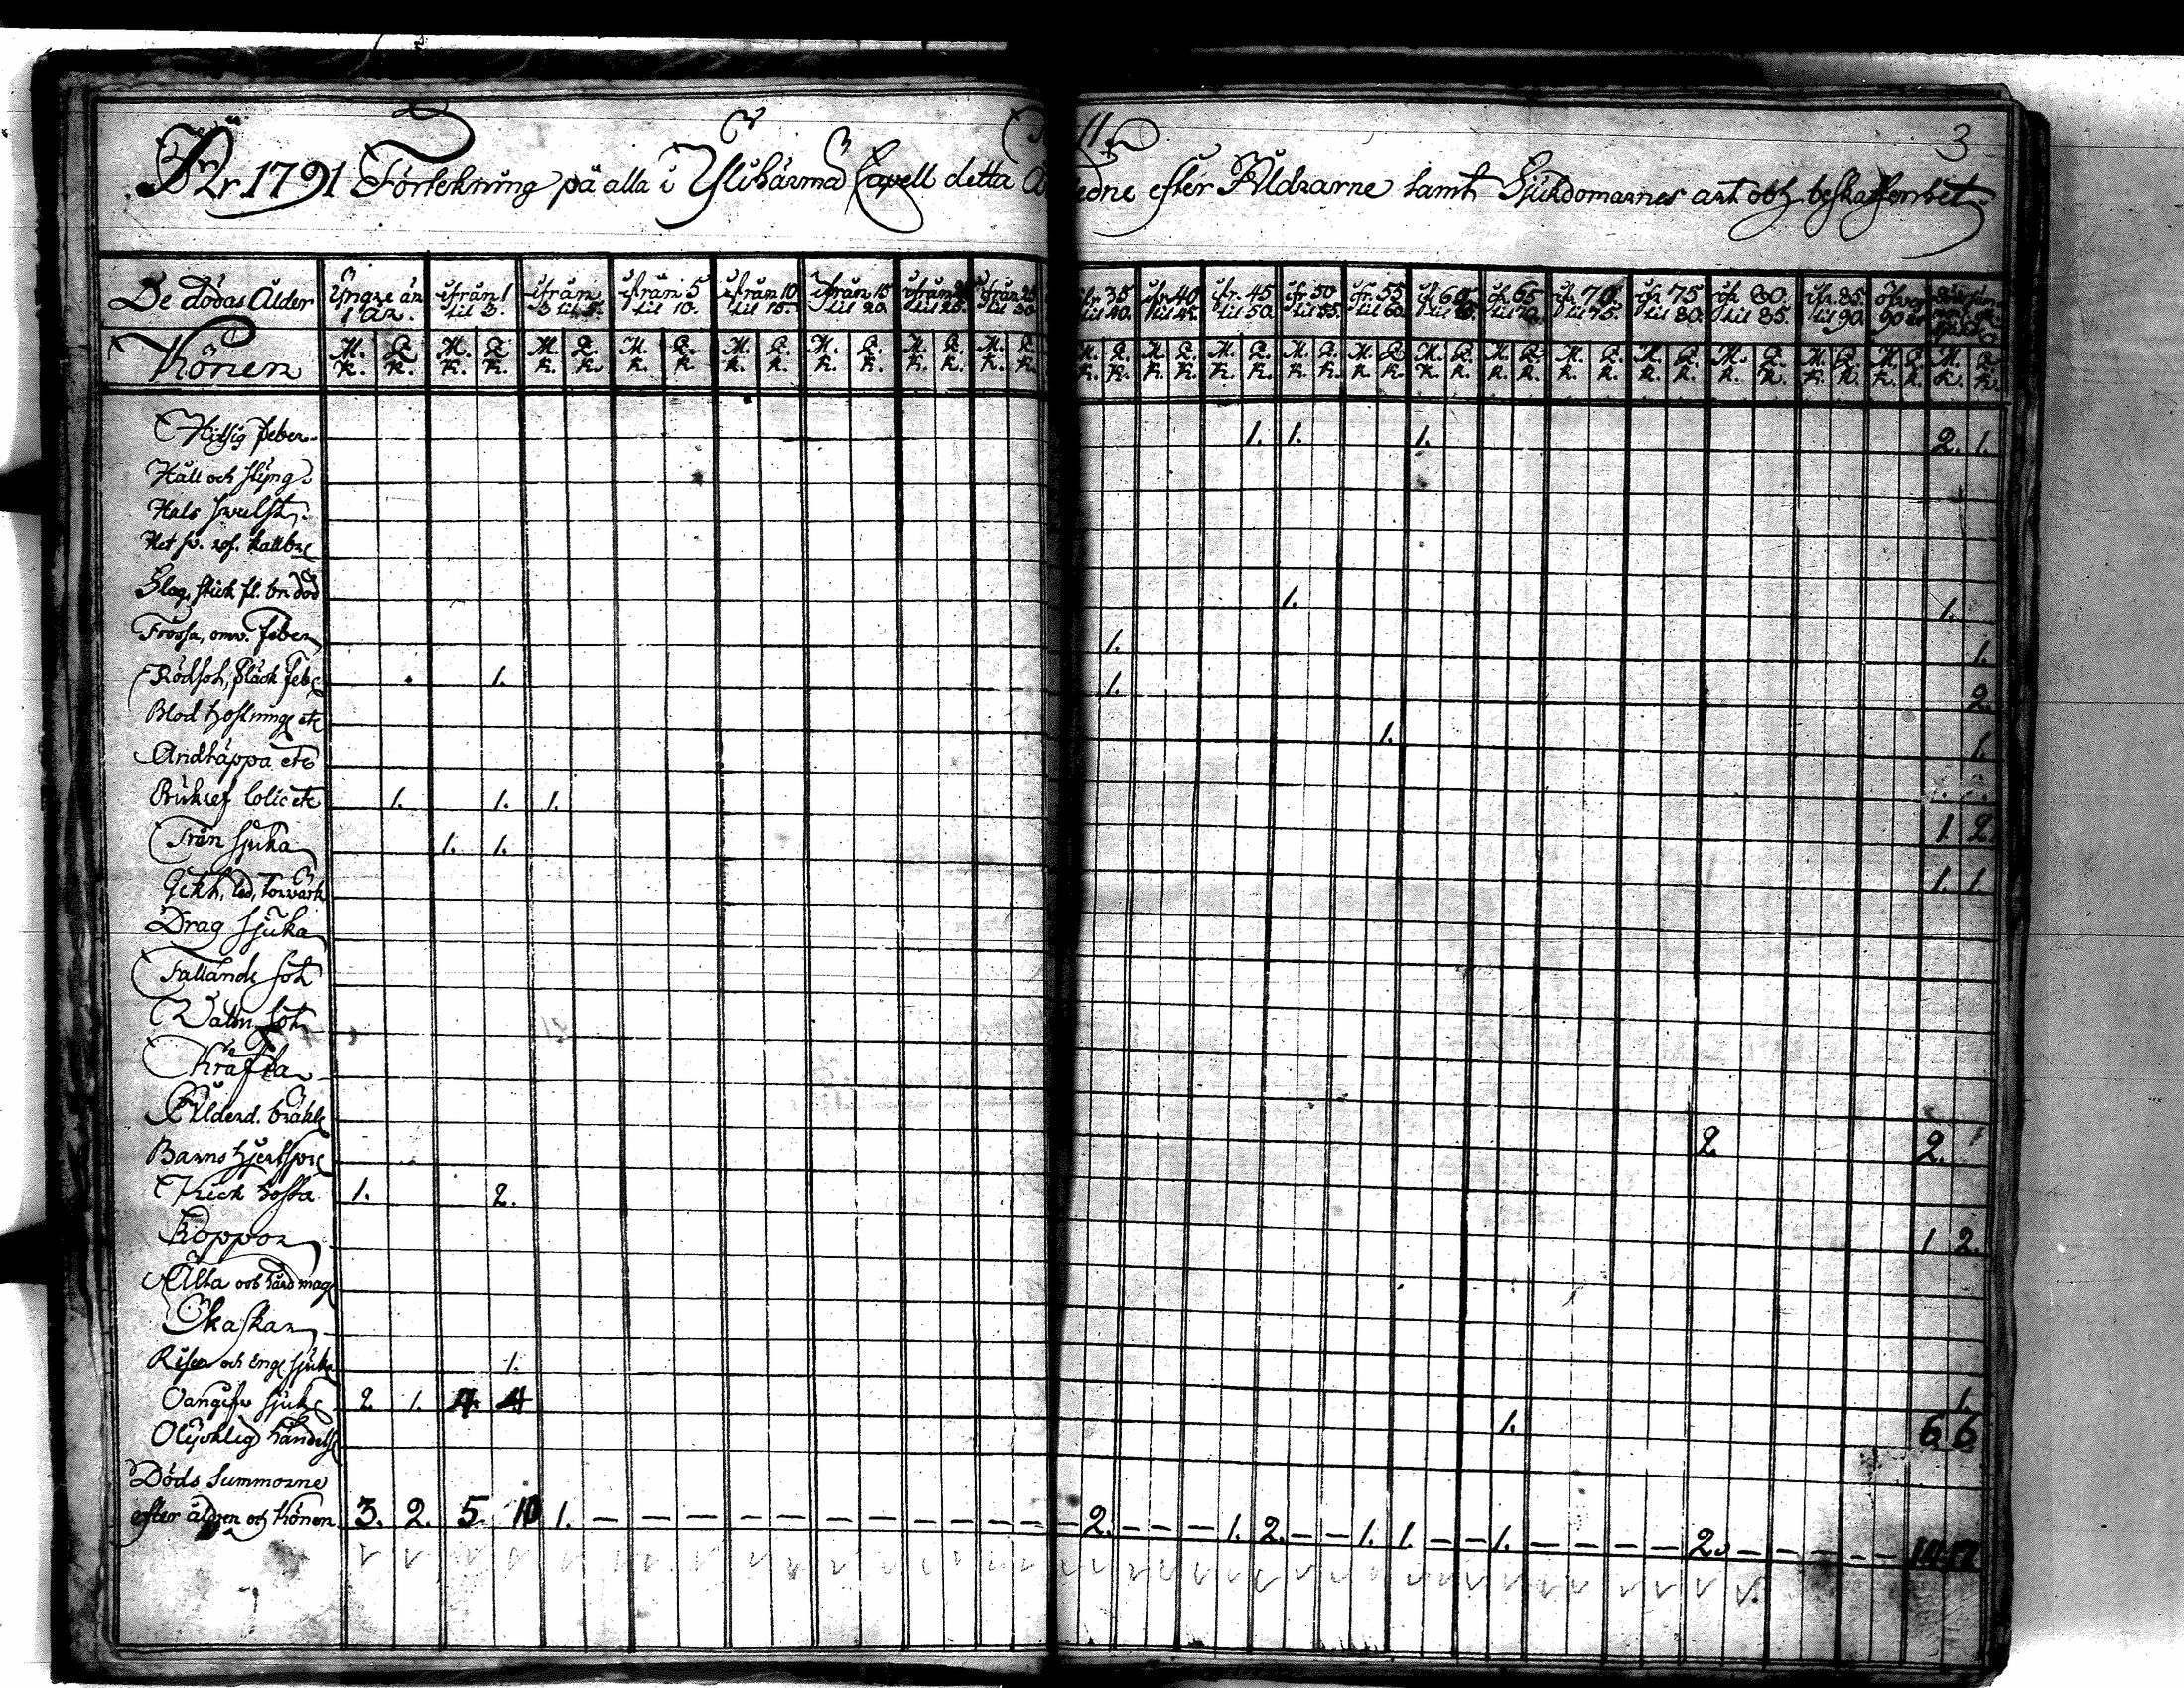 3
År 1791 Förtekning på alla i Ylihärmä Capell detta efter Åldrarne samt Sjukdomarnes art och beskaffenhet
De dödas Ålder Yngre än ifrån 1 ifrån ifrån 5 ifrån 10 ifrån 15 ifrån ifrån 25 ifr. 35 ifr. 40 ifr. 45 ifr. 50 ifr. 55 ifr. 60 ifr. 65 ifr. 70. ifr. 75 ifr. 80. ifr. 85. öfver
1 år. til 3. 3 til 5. til 10. til 15. til 20 til 25. til 30 til 40. til 45. til 50. til 55. til 60. til til 70. til 75. til 80. til 85. til 90. 90 år
Könen M. Q. M. Q. M. Q. M. Q. M. Q. M. Q. M. Q. M. Q. M. Q. M. Q. M. Q. M. Q. M. Q. M. Q. M. Q. M. Q. M. Q. M. Q. M. Q. M. Q. M. Q.
K. K. K. K. K. K. K. K. K. K. K. K. K. K. K. K. K. K. K. K. K. K. K. K. K. K. K. K. K. K. K. K. K. K. K. K. K. K. K. K. K. K.
Hitsig feber 1. 1. 1. 2. 1.
Håll och styng
Hals swulst
Het kallbr
Slag, stick fl. br. död 1. 1.
Frossa, omv. feber 1. 1.
Rödsot, fläck feb 1. 1. 2.
Blod hostning etc 1. 1.
Andtäppa etc
Bukref Colic etc 1. 1. 1. 1 2.
Trån sjuka 1. 1. 1. 1.
Gikt, led, torrvärk
Drag sjuka
Fallande sot
Vattn sot
Kräfta
Ålderd. bräckl 2. 2.
Barns hjertspr
Kick hosta 1. 2. 1 2.
Koppor
Älta och hård mag
Skaskan
Risen och Eng. sjuka 1. 1.
Oangifv sjuk 2 1. 4. 4 6 6
Olycklig händels 1.
Döds Summorne
efter åldren och Könen 3. 2. 5 10 1. – – – – – – – – – – – – – 2. – – – 1. 2. – – 1. 1. – – 1. – – – – – 2. – – – – – – 14. 17